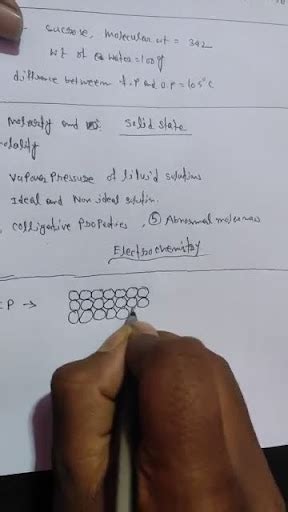 sucrose, molecular wt = 342
wt of water = 100g
diffrence between f.P and B.P = 105°C
Molarity and Solid State
molality
Vapour Pressure of liquid solutions
Ideal and Non ideal solution.
Colligative Properties, ⑤ Abnormal molar mass
Electrochemistry
CP →